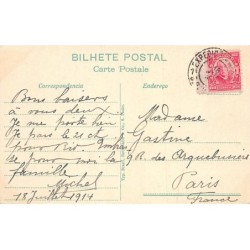 BILHETE POSTAL
Carte Postale
Correspondencia
Endereço
Bons baisers
à vous deux.
Je me porte bien
Je pars le 21 ct
pour Rio. Embras
se pour moi la
famille
Michel
18 Juillet 1914
Madame
Gastine
9 R. des Arquebusiers
Paris
France